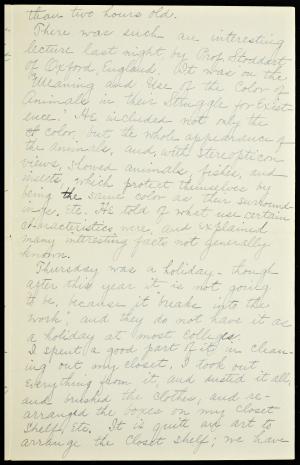 than two hours old.
There was such an interesting
lecture last night, by Prof. Stoddart
of Oxford, England. It was on the
"Meaning and Use of the Color of
Animals in their Struggle for Exist
ence." He included not only the
color, but the whole appearance of
the animals, and, with stereopticon
views, showed animals, fishes, and
insects, which protect themselves by
being the same color as their surround-
ings, Etc. He told of what use certain
characteristics were, and explained
many interesting facts not generally
known.
Thursday was a holiday - though
after this year it is not going
to be, because it breaks into the
work, and they do not have it as
a holiday at most Colleges.
I spent a good part of it in clean-
ing out my closet. I took out
Everything from it, and dusted it all,
and brushed the clothes, and re-
arranged the boxes on my closet
shelf, Etc. It is quite an art to
arrange the closet shelf; we have